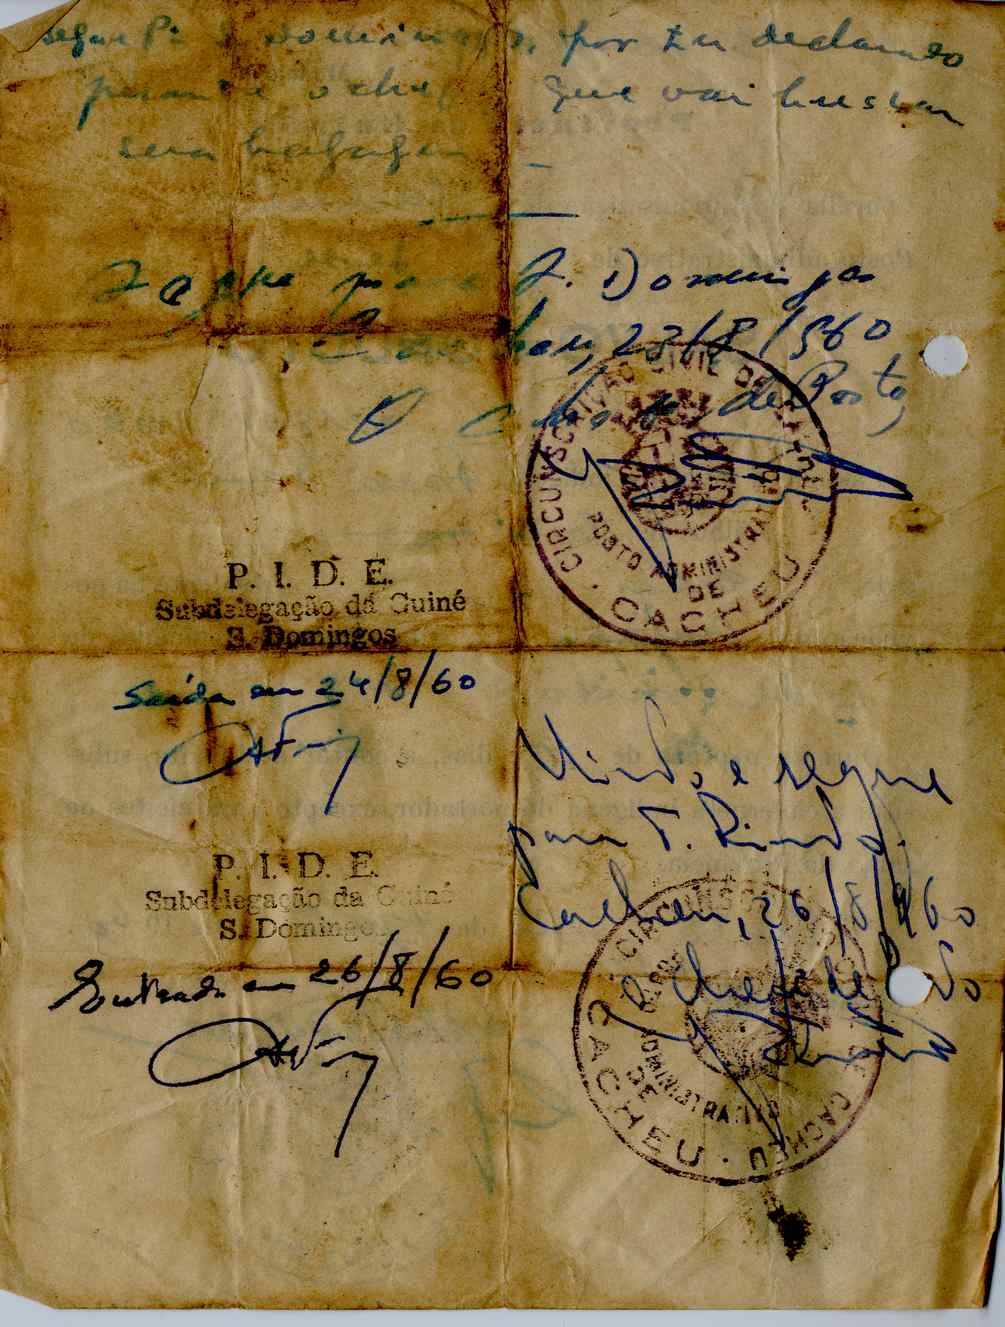 segue p. S. Domingos, por ter declarado
perante o chefe que vai buscar
sua bagagem
Segue para S. Domingos
Cacheu, 23/8/960
O Chefe de Posto,
CIRCUNSCRIÇÃO CIVIL DE CACHEU
POSTO ADMINISTRATIVO
DE
CACHEU
P. I. D. E.
Subdelegação da Guiné
S. Domingos
Saída em 24/8/60
Visto, e segue
para T. Pinto.
Cacheu, 26/8/960
O Chefe de Posto
P. I. D. E.
Subdelegação da Guiné
S. Domingos
Entrada em 26/8/60
POSTO ADMINISTRATIVO
DE
CACHEU